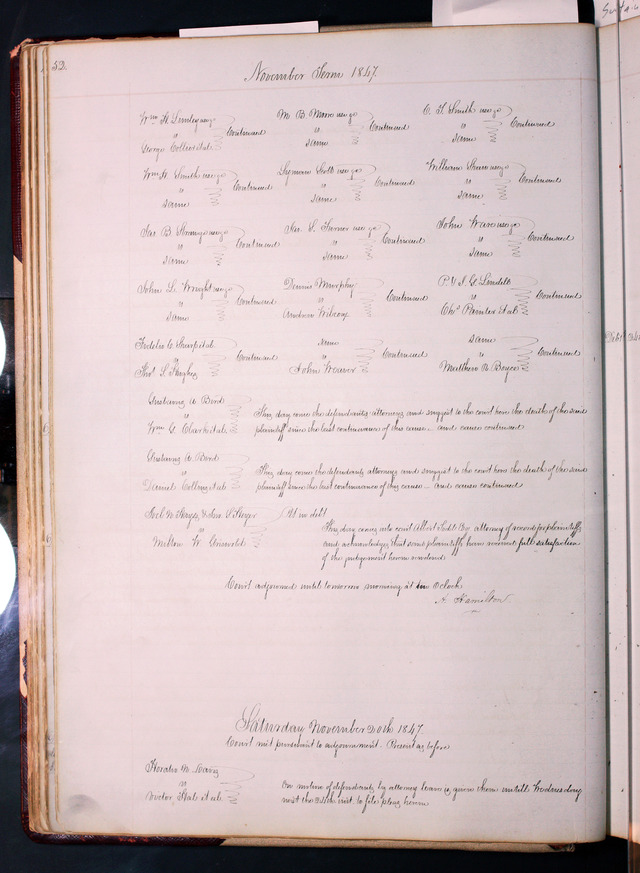 52.
November Term 1847.
Wm H. Linley
vs Continued
George Collier et al.
M B. Moore
vs Continued
same
C. F. Smith
vs Continued
same
Wm H Smith
vs Continued
same
Lyman Scott
vs Continued
same
William Shaw
vs Continued
same
Jas B Strong
vs Continued
same
Jas. S. Turner
vs Continued
same
John Ware
vs Continued
same
John L. Wright
vs Continued
same
Dennis Murphy
vs Continued
Andrew Wilcox
P. & J. G. Lindell
vs Continued
Chs Painter et al.
Fidelio C. Sharp et al.
vs Continued
Thos L Hughes
same
vs Continued
John Weaver
same
vs Continued
Matthew N Boyce
Gustavus A Bird
vs
Wm G. Clark et al.
This day come the defendants attorneys and suggest to the court here the death of the said
plaintiff since the last continuance of this cause - and cause continued
Gustavus A. Bird
vs
Daniel Colling et al.
This day come the defendants attorneys and suggest to the court here the death of the said
plaintiff since the last continuance of this cause - and cause continued.
Joel N Hayes & John
vs
Milton W. Griswold
This day comes into court Albert Todd Esq attorney of record for plaintiffs
and acknowledges that said plaintiffs have received full satisfaction
of the judgement herein rendered
Court adjourned until tomorrow morning at ten O'clock
A. Hamilton
Saturday November 20th 1847.
Court met pursuant to adjournment. Present as before
Horatio M. Davis
vs
Doctor Hale et al.
On motion of defendants by attorney leave is given them untill Wednesday
next the 24th inst. to file pleas herein